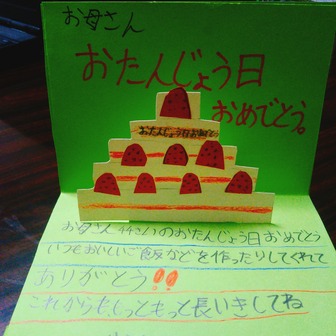 お母さん
おたんじょう日
おめでとう。
おたんじょう日お めでとう
お母さん44さいのおたんじょう日おめでとう
いつもおいしいご飯などを作ったりしてくれて
ありがとう!!
これからも、もっともっと長いきしてね